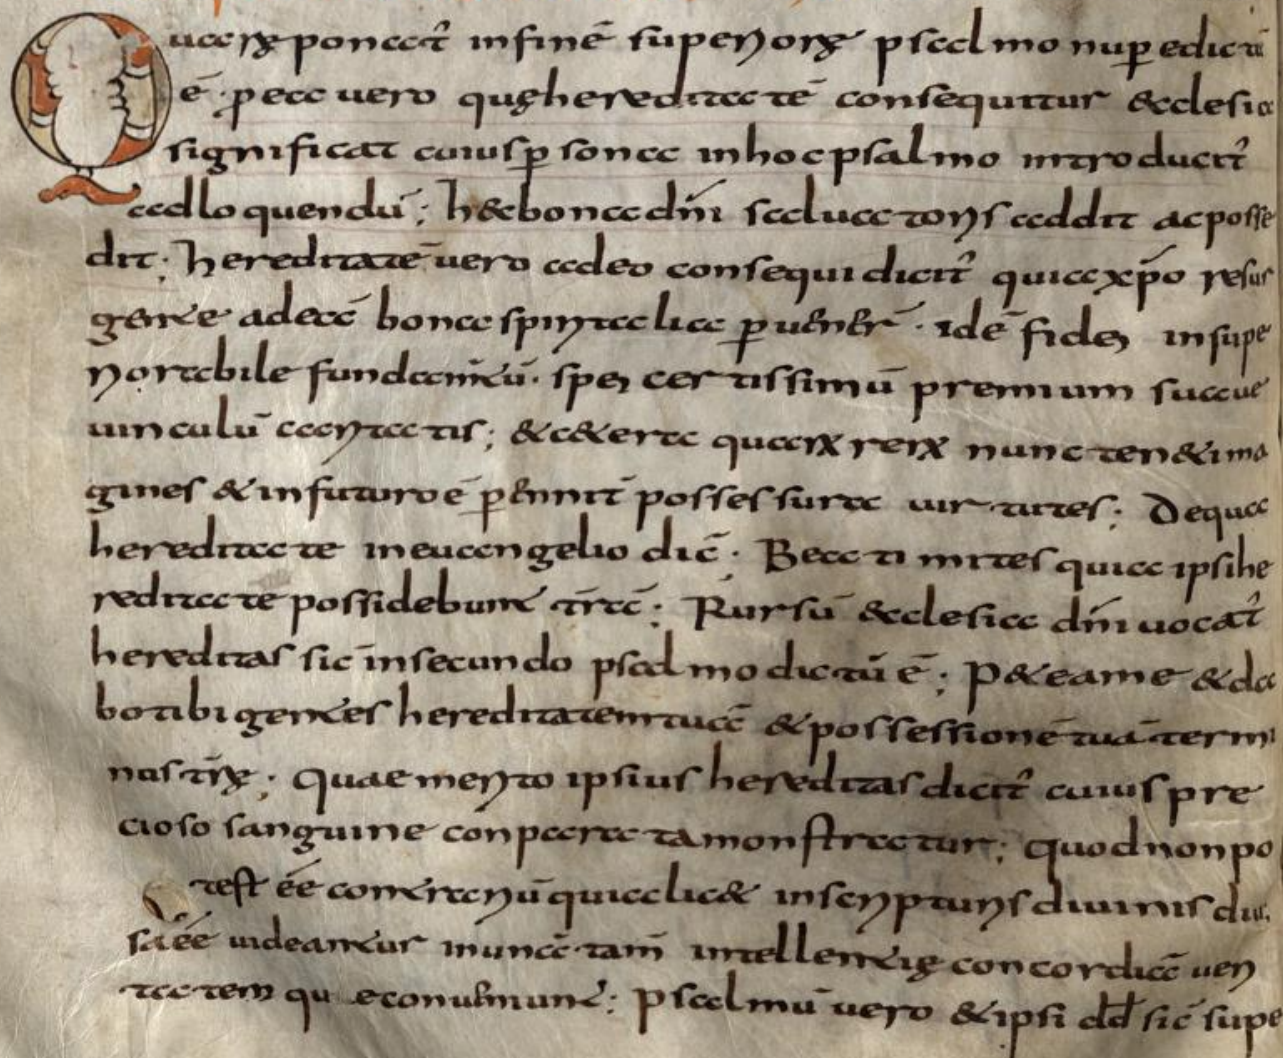 Quare ponat̄ infinē superiorę psalmo nup̄ edictū
ē· p̱ea uero quę hereditatē consequitur &clesia
significat cuius p̱sona inhoc psalmo introducit̄
adloquendū; h&c bona dn̄i saluatoris addit ac posse
dit; hereditatē uero adeo consequi dicit̄ quia xp̄o resur
gente ad ea bona spiritalia p̱uener̄· Idē fides insupe
rorabile fundam̄tū· spes certissimū premium suaue
uinculū caritatis; &c&era quarū rerū nunc ten& ima
gines & infuturo ē p̱ennit̄ possessura uirtutes; Dequa
hereditate ineuangelio dic̄· Beati mites quia ipsi he
reditate possidebunt tr̄ā; Rursū &clesia dn̄i uocat̄
hereditas sic̄ insecundo psalmo dictū ē; P&e ame & da
bo tibi gentes hereditatem tuā & possessionē tuā termi
nos tr̄ę; Quae merito ipsius hereditas dicit̄ cuius pre
cioso sanguine conparata monstratur; quod non po
test eē contrariū quia lic& inscripturis diuinis diu
sa eē uideantur inunā tam̄ intellentię concordia ueri
tatem qu econueniunt; Psalmū uero & ipsi dd̄ sic̄ supe